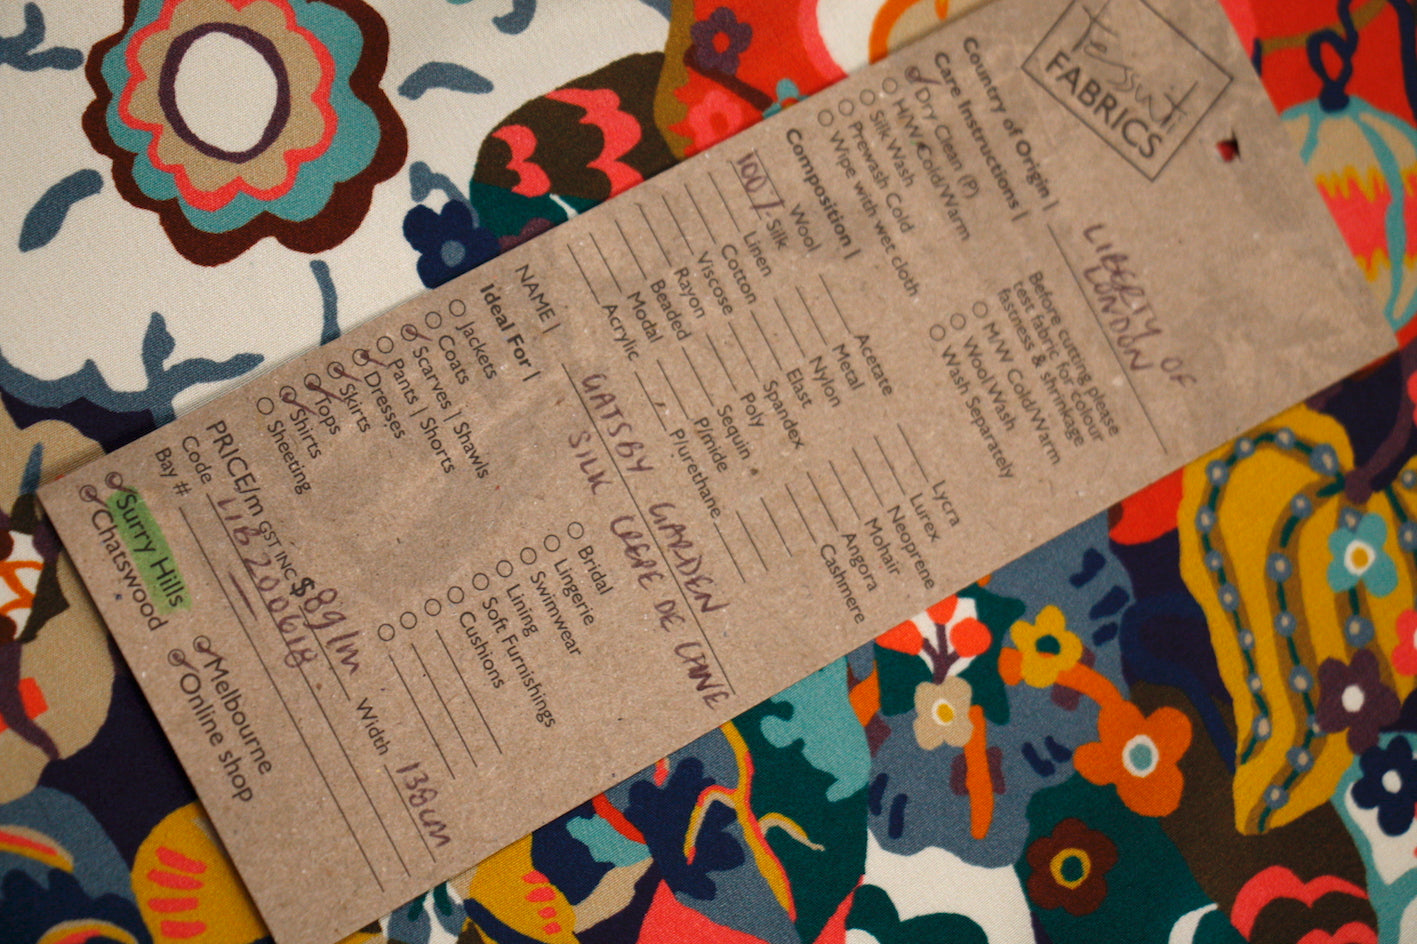 Tessuti
FABRICS
Country of Origin | LIBERTY OF
LONDON
Care Instructions |
Dry Clean (P)
H/W Cold/Warm
Silk Wash
Prewash Cold
Wipe with wet cloth
Before cutting please
test fabric for colour
fastness & shrinkage
M/W Cold/Warm
Wool Wash
Wash Separately
Composition |
Wool
100% Silk
Linen
Cotton
Viscose
Rayon
Beaded
Modal
Acrylic
Acetate
Metal
Nylon
Elast
Spandex
Poly
Sequin
P/mide
P/urethane
Lycra
Lurex
Neoprene
Mohair
Angora
Cashmere
NAME | GATSBY GARDEN
SILK CREPE DE CHINE
Ideal For |
Jackets
Coats
Scarves | Shawls
Pants | Shorts
Dresses
Skirts
Tops
Shirts
Sheeting
Bridal
Lingerie
Swimwear
Lining
Soft Furnishings
Cushions
PRICE/m GST INC $ 89/m Width 138cm
Code LIB200618
Bay #
Surry Hills
Chatswood
Melbourne
Online shop